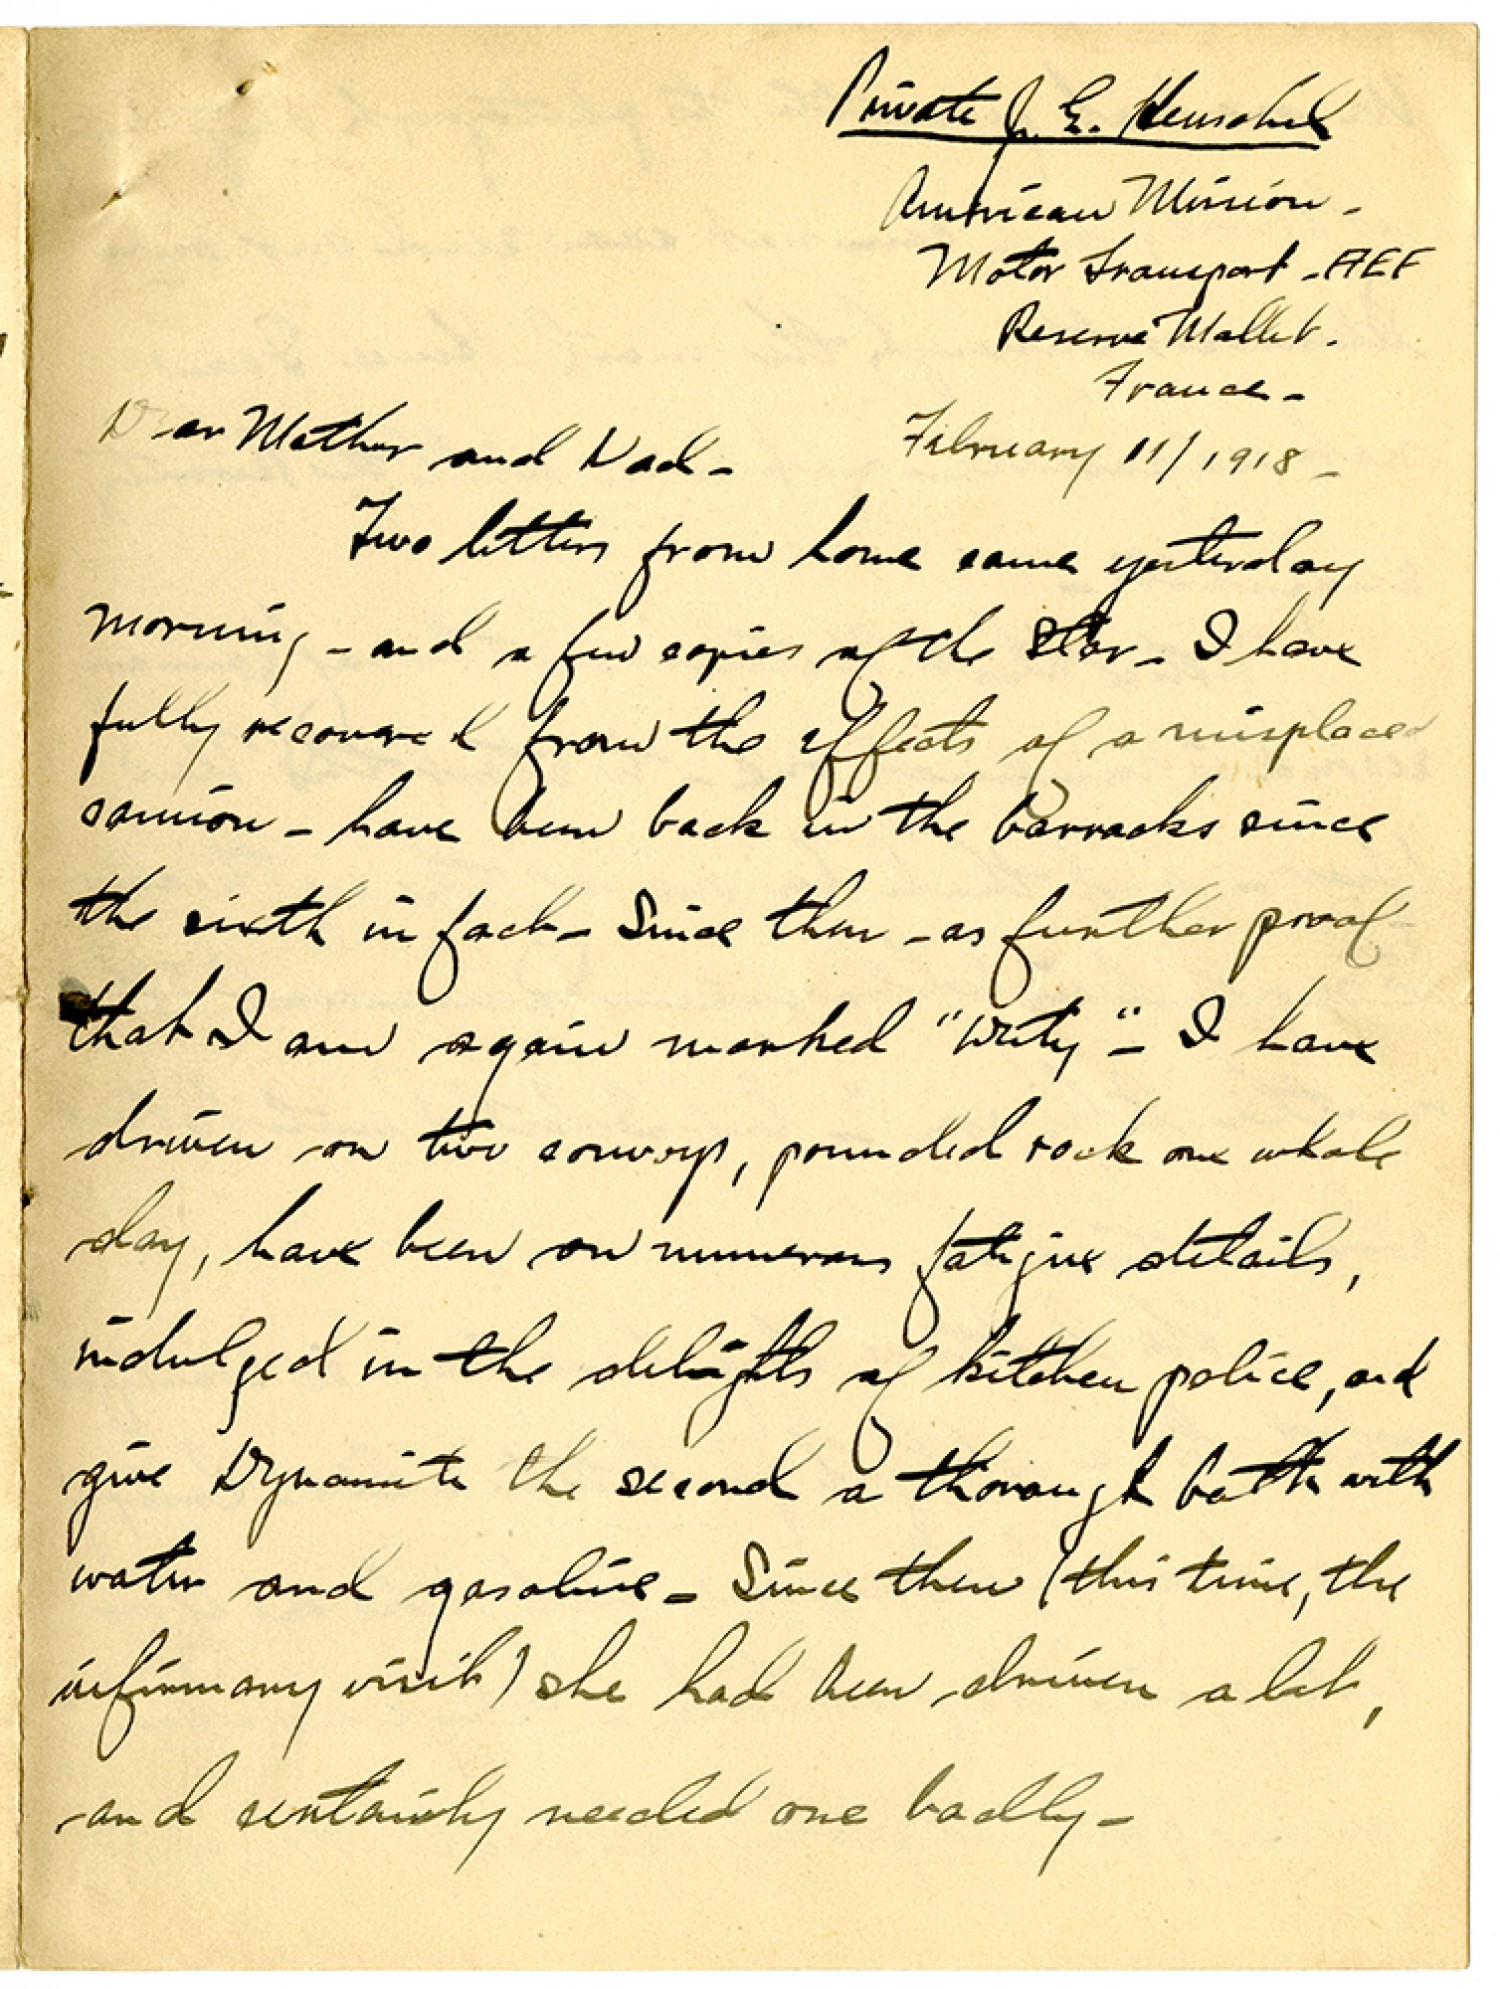 Private J. E. Henschel
American Mission -
Motor Transport - AEF
Reserve Mallet -
France -
February 11/1918 -
Dear Mother and Dad -
Two letters from home came yesterday
morning - and a few copies of the Star - I have
fully recovered from the effects of a misplaced
camion - have been back in the barracks since
the sixth in fact - Since then - as further proof -
that I am again marked "duty" - I have
driven on two convoys, pounded rock one whole
day, have been on numerous fatigue details,
indulged in the delights of kitchen police, and
give Dynamite the second a thorough bath with
water and gasoline - Since then (this time, the
infirmary visit) she had been driven a lot,
and certainly needed one badly -